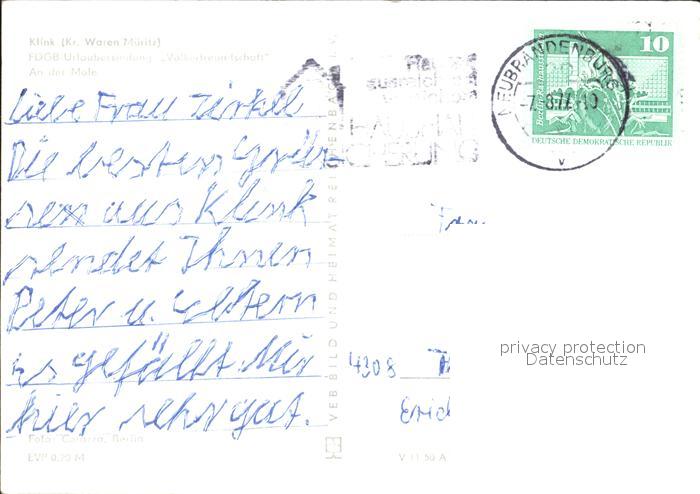 Klink (Kr. Waren Müritz)
FDGB-Urlaubersiedlung „Völkerfreundschaft"
An der Mole
Liebe Frau
Die besten Grüs-
sen aus Klink
sendet Ihnen
Peter u. Eltern
Es gefällt Mir
hier sehr gut.
Foto: Camera, Berlin
EVP 0,20 M
VEB BILD UND HEIMAT REICHENBACH
V 11 50 A
NEUBRANDENBURG
10
Berlin, Rathausstraße
DEUTSCHE DEMOKRATISCHE REPUBLIK
Frau
4308
Erich
privacy protection
Datenschutz